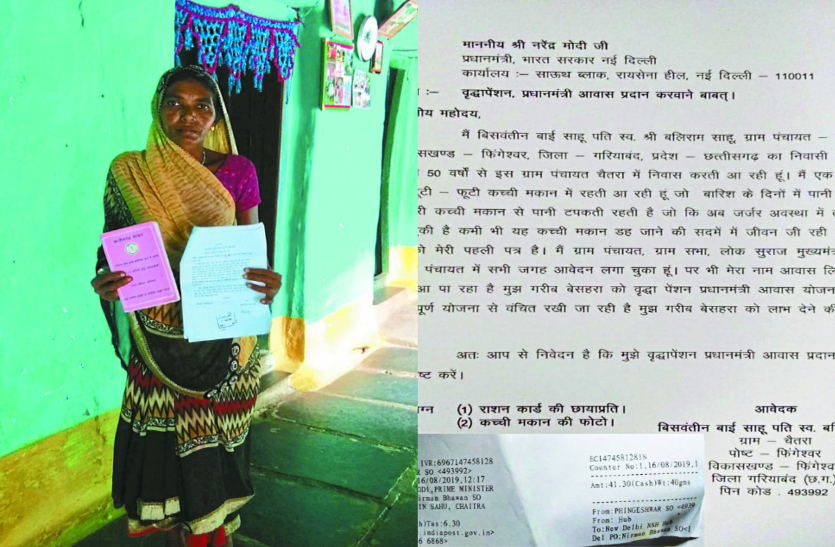 छत्तीसगढ़ शासन
माननीय श्री नरेंद्र मोदी जी
प्रधानमंत्री, भारत सरकार नई दिल्ली
कार्यालय :– साऊथ ब्लाक, रायसेना हील, नई दिल्ली – 110011
:– वृद्धापेंशन, प्रधानमंत्री आवास प्रदान करवाने बाबत्।
ीय महोदय,
मैं बिसवंतीन बाई साहू पति स्व. श्री बलिराम साहू, ग्राम पंचायत –
सखण्ड – फिंगेश्वर, जिला – गरियाबंद, प्रदेश – छत्तीसगढ़ का निवासी
50 वर्षो से इस ग्राम पंचायत चैतरा में निवास करती आ रही हूं। मैं एक
टूटी – फूटी कच्ची मकान में रहती आ रही हूं जो बारिश के दिनों में पानी
री कच्ची मकान से पानी टपकती रहती है जो कि अब जर्जर अवस्था में
की है कभी भी यह कच्ची मकान डह जाने की सदमें में जीवन जी रही
ो मेरी पहली पत्र है। मैं ग्राम पंचायत, ग्राम सभा, लोक सुराज मुख्यमंत्
पंचायत में सभी जगह आवेदन लगा चुका हूं। पर भी मेरा नाम आवास लि
आ पा रहा है मुझ गरीब बेसहरा को वृद्धा पेंशन प्रधानमंत्री आवास योजन
पूर्ण योजना से वंचित रखी जा रही है मुझ गरीब बेसहरा को लाभ देने की
अतः आप से निवेदन है कि मुझे वृद्धापेंशन प्रधानमंत्री आवास प्रदान
ष्ट करें।
ग्न (1) राशन कार्ड की छायाप्रति।
(2) कच्ची मकान की फोटो।
आवेदक
बिसवंतीन बाई साहू पति स्व. बलि
ग्राम – चैतरा
पोष्ट – फिंगेश्वर
विकासखण्ड – फिंगेश्व
जिला गरियाबंद (छ.ग.)
पिन कोड . 493992
IVR:6967147458128
SO <493992>
16/08/2019,12:17
ODI,PRIME MINISTER
Nirman Bhawan SO
IN SAHU, CHAITRA
)Tax:6.30
.indiapost.gov.in>
6 6868>
EC147458128IN
Counter No:1,16/08/2019,1
Amt:41.30(Cash)Wt:40gms
From:PHINGESHWAR SO <4939
From: Hub
To:New Delhi NSH Hub
Del PO:Nirman Bhawan SO<1